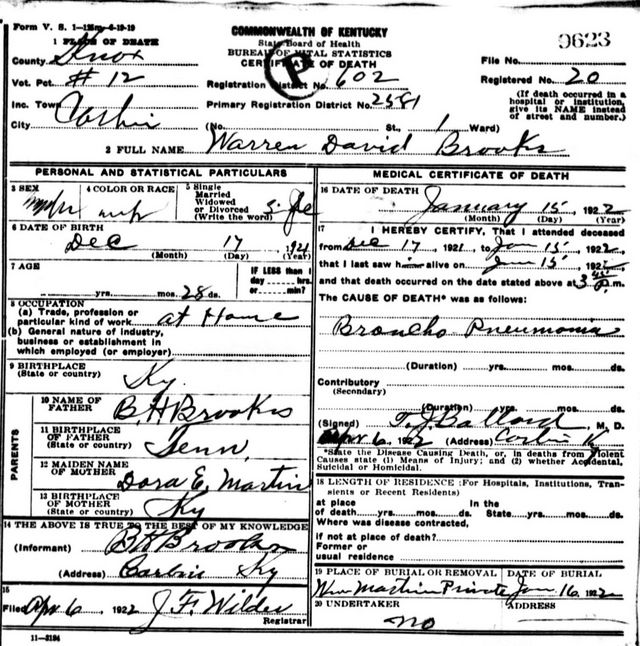 Form V. S. 1—125m—6-19-19
COMMONWEALTH OF KENTUCKY
State Board of Health
BUREAU OF VITAL STATISTICS
CERTIFICATE OF DEATH
P
9623
1 PLACE OF DEATH
County Knox
File No.
Vot. Pct. #12
Registration District No. 602
Registered No. 20
Inc. Town Corbin
Primary Registration District No. 2581
(If death occurred in a hospital or institution, give its NAME instead of street and number.)
City (No. St., 1 Ward)
2 FULL NAME Warren David Brooks
PERSONAL AND STATISTICAL PARTICULARS
3 SEX
4 COLOR OR RACE
5 Single
Married
Widowed
or Divorced
(Write the word)
6 DATE OF BIRTH
Dec 17, 1921
(Month) (Day) (Year)
7 AGE
IF LESS than 1
day hrs.
or min?
yrs. mos. 28 ds.
8 OCCUPATION
(a) Trade, profession or
particular kind of work at Home
(b) General nature of industry,
business or establishment in
which employed (or employer)
9 BIRTHPLACE
(State or country) Ky.
PARENTS
10 NAME OF
FATHER B. H Brooks
11 BIRTHPLACE
OF FATHER
(State or country) Tenn.
12 MAIDEN NAME
OF MOTHER Dora E. Martin
13 BIRTHPLACE
OF MOTHER
(State or country) Ky
14 THE ABOVE IS TRUE TO THE BEST OF MY KNOWLEDGE
(Informant) B H Brooks
(Address) Corbin Ky
15
Filed Apr 6, 1922 J. F. Wilder
Registrar
11—3184
MEDICAL CERTIFICATE OF DEATH
16 DATE OF DEATH
January 15, 1922
(Month) (Day) (Year)
17 I HEREBY CERTIFY, That I attended deceased
from Dec 17, 1921, to Jan 15, 1922,
that I last saw him alive on Jan 15, 192
and that death occurred on the date stated above at 3 45 P.m.
The CAUSE OF DEATH* was as follows:
Broncho Pneumonia
(Duration) yrs. mos. ds.
Contributory
(Secondary)
(Duration) yrs. mos. ds.
(Signed) T. J Ballard, M. D.
Apr 6, 1922 (Address) Corbin K
*State the Disease Causing Death, or, in deaths from Violent
Causes state (1) Means of Injury; and (2) whether Accidental,
Suicidal or Homicidal.
18 LENGTH OF RESIDENCE (For Hospitals, Institutions, Tran-
sients or Recent Residents)
at place In the
of death yrs. mos. ds. State yrs. mos. ds.
Where was disease contracted,
if not at place of death?
Former or
usual residence
19 PLACE OF BURIAL OR REMOVAL DATE OF BURIAL
Wm Martin Private Jan 16, 1922
20 UNDERTAKER ADDRESS
no